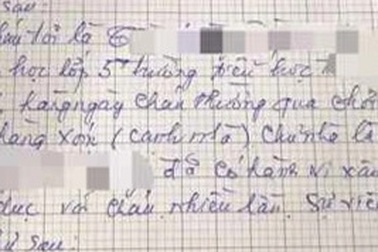 sau:
Cháu tôi là
học lớp 5 trường tiểu học
hàng ngày cháu thường qua chơi
hàng xóm (cạnh nhà) chủ nhà là
đã có hành vi xâm
dục với cháu nhiều lần. Sự việc
sau: